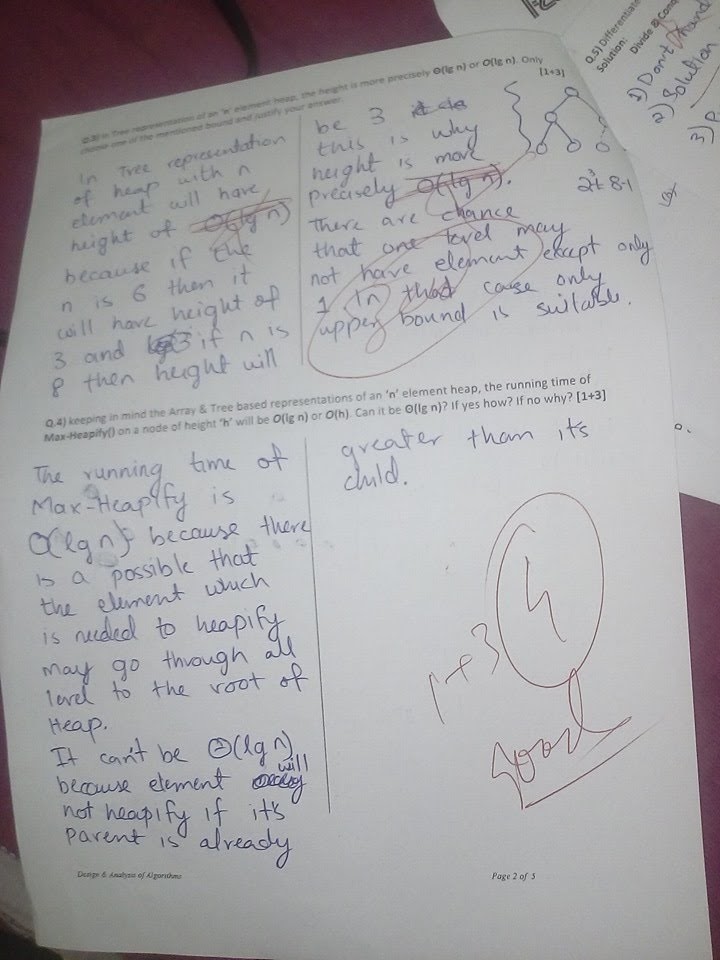 Q.3) In Tree representation of an 'n' element heap, the height is more precisely Θ(lg n) or O(lg n). Only
choose one of the mentioned bound and justify your answer. [1+3]
In Tree representation
of heap with n
element will have
height of O(lg n)
because if the
n is 6 then it
will have height of
3 and if n is
8 then height will
be 3
this is why
height is more
precisely O(lg n).
There are chance
that one level may
not have element except only
1 In that case only
upper bound is suitable.
Q.4) keeping in mind the Array & Tree based representations of an 'n' element heap, the running time of
Max-Heapify() on a node of height 'h' will be O(lg n) or O(h). Can it be Θ(lg n)? If yes how? If no why? [1+3]
The running time of
Max-Heapify is
O(lg n) because there
is a possible that
the element which
is needed to heapify
may go through all
level to the root of
Heap.
It can't be Θ(lg n)
because element will
not heapify if it's
parent is already
greater than it's
child.
1+3
4
Good
Design & Analysis of Algorithms
Page 2 of 5
Q.5) Differentiate
Divide & Conq
Solution:
1) Don't
2) Solution
3)